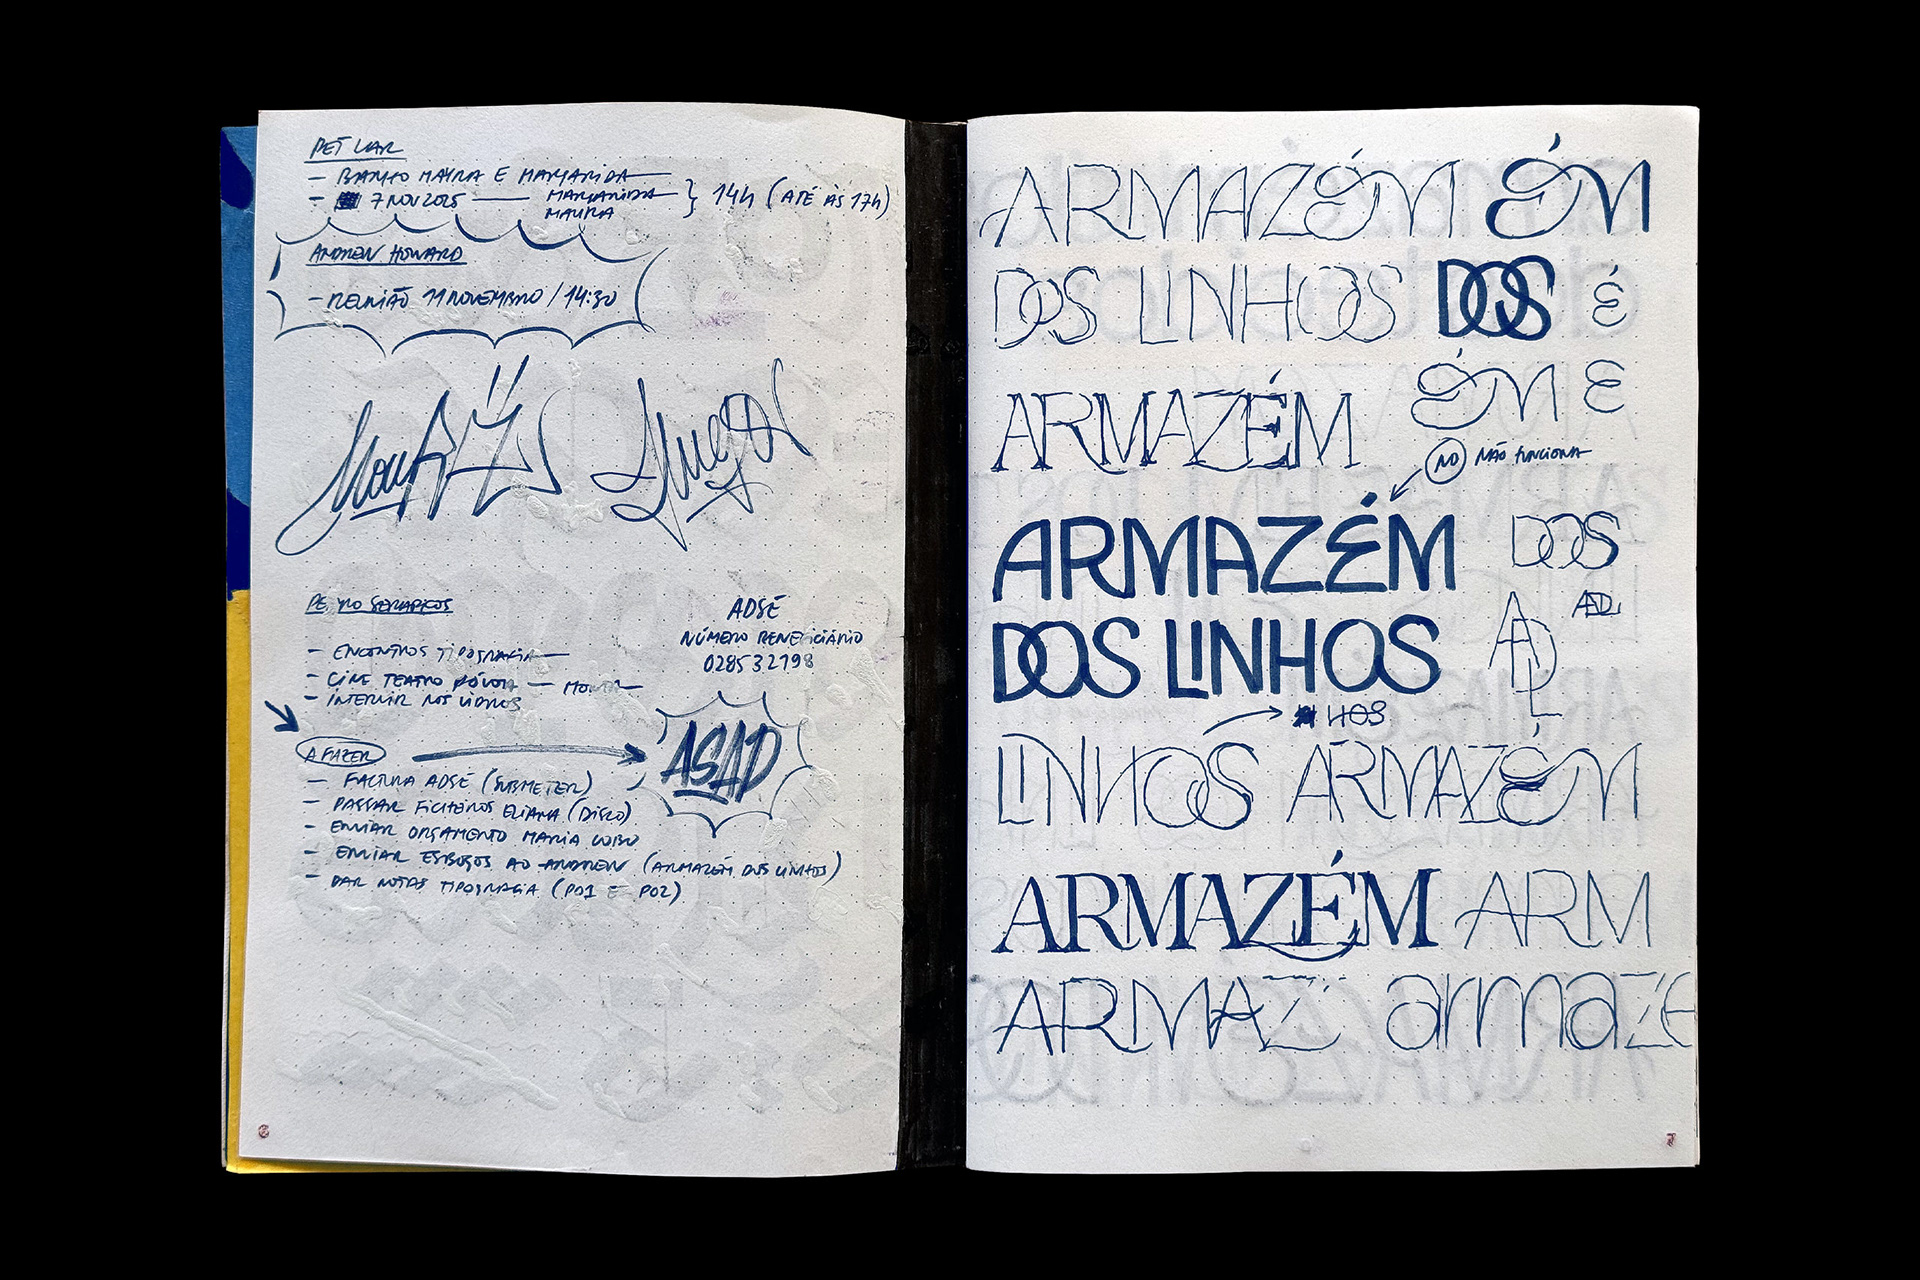 PET LIAR
— BANHO MAYRA E MARGARIDA
— 7 NOV 2025 — MARGARIDA } 14h (ATÉ ÀS 17h)
MAYRA
ANDREW HOWARD
— REUNIÃO 11 NOVEMBRO / 14:30
— ENCONTROS TIPOGRAFIA
— CINE TEATRO
— INTERVIR NOS VIDROS
ADSE
NÚMERO BENEFICIÁRIO
028532198
A FAZER
ASAD
— FACTURA ADSE (SUBMETER)
— PASSAR FICHEIROS ELIANA (DISCO)
— ENVIAR ORÇAMENTO MARIA LOBO
— ENVIAR ESBOÇOS AO ANDREW (ARMAZÉM DOS LINHOS)
— DAR NOTAS TIPOGRAFIA (P01 E P02)
ARMAZÉM ÉM
DOS LINHOS DOS É
ARMAZÉM ÉM E
NO NÃO FUNCIONA
ARMAZÉM DOS
ADL
ADL
DOS LINHOS
HOS
LINHOS ARMAZÉM
ARMAZÉM ARM
ARMAZ armaze